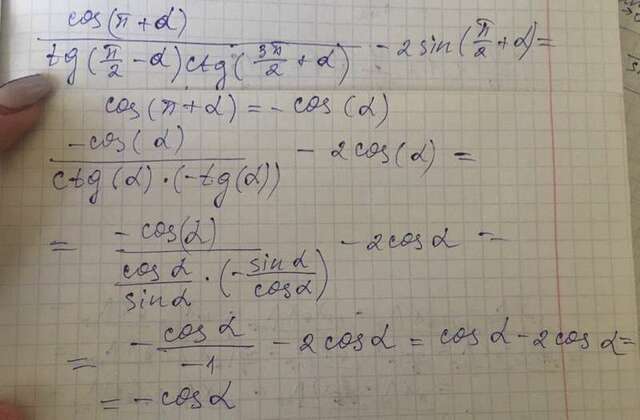 cos(π+α)/(tg(π/2-α)ctg(3π/2+α)) - 2sin(π/2+α)=
cos(π+α)=-cos(α)
-cos(α)/(ctg(α)·(-tg(α))) - 2cos(α) =
= -cos(α)/(cosα/sinα·(-sinα/cosα)) - 2cosα =
= -cosα/-1 - 2cosα = cosα-2cosα=
=-cosα